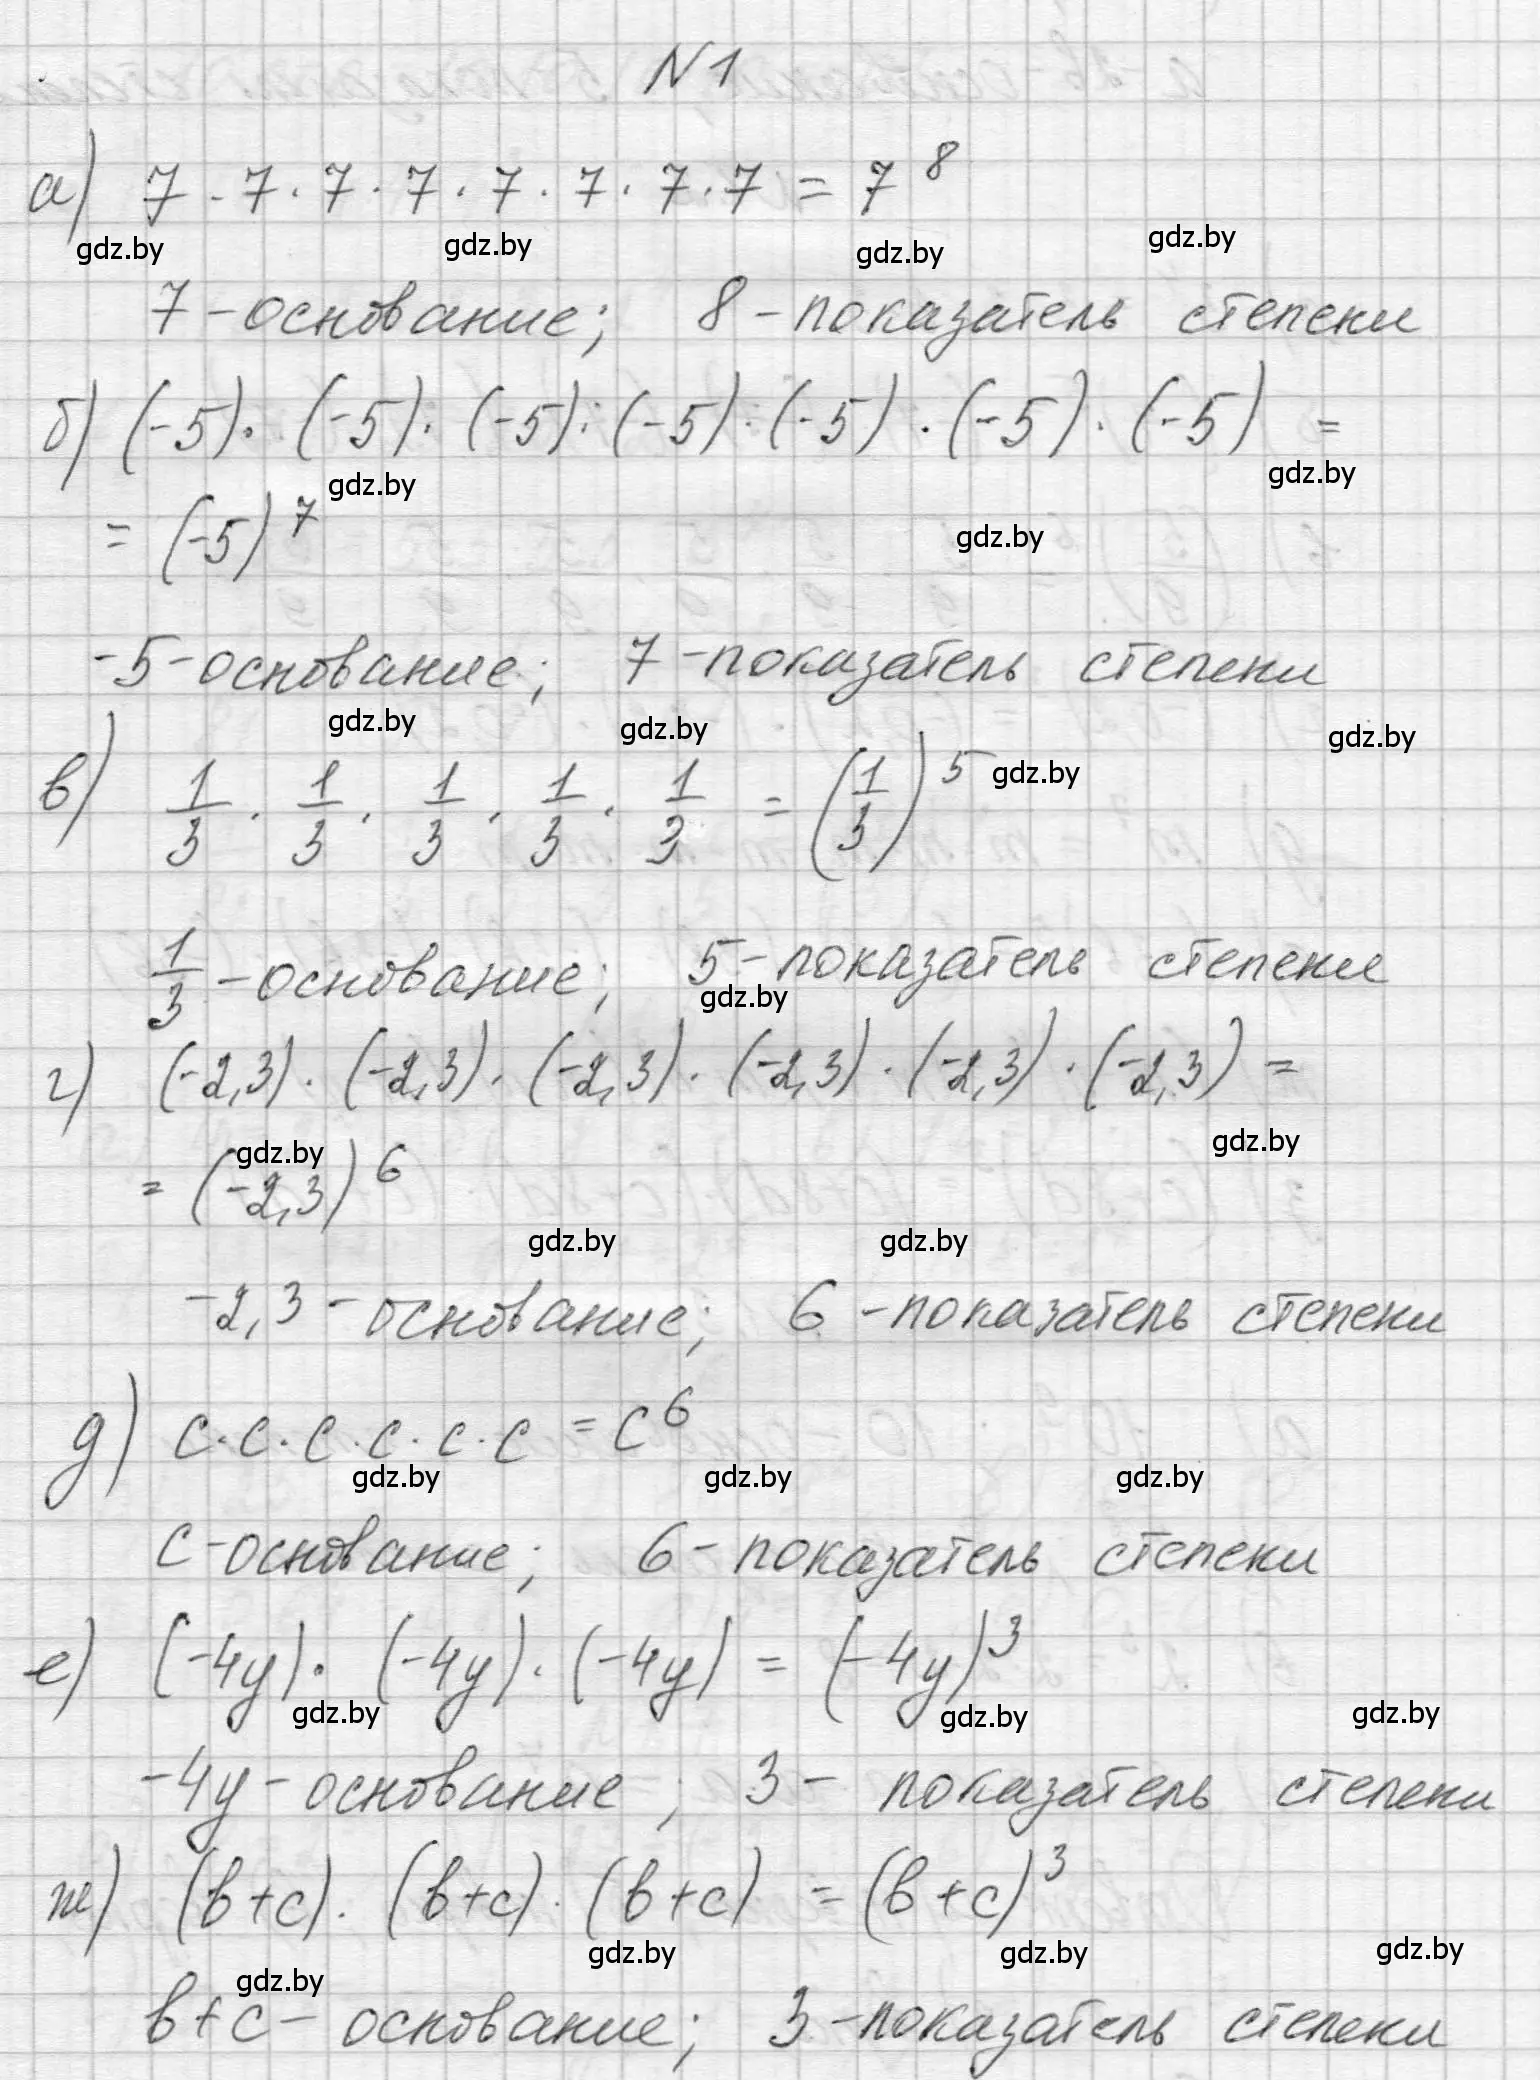 N 1
а) 7 · 7 · 7 · 7 · 7 · 7 · 7 · 7 = 7⁸
gdz.by gdz.by gdz.by gdz.by
7 - основание; 8 - показатель степени
б) (-5) · (-5) · (-5) · (-5) · (-5) · (-5) · (-5) =
gdz.by gdz.by
= (-5)⁷ gdz.by
-5 - основание; 7 - показатель степени
gdz.by gdz.by gdz.by
в) 1/3 · 1/3 · 1/3 · 1/3 · 1/3 = (1/3)⁵ gdz.by
1/3 - основание; 5 - показатель степени
gdz.by
г) (-2,3) · (-2,3) · (-2,3) · (-2,3) · (-2,3) · (-2,3) =
gdz.by gdz.by
= (-2,3)⁶
gdz.by gdz.by
-2,3 - основание; 6 - показатель степени
д) c · c · c · c · c · c = c⁶
gdz.by gdz.by gdz.by
c - основание; 6 - показатель степени
е) (-4y) · (-4y) · (-4y) = (-4y)³
gdz.by gdz.by gdz.by
-4y - основание; 3 - показатель степени
ж) (b+c) · (b+c) · (b+c) = (b+c)³
gdz.by gdz.by gdz.by
gdz.by
b+c - основание; 3 - показатель степени